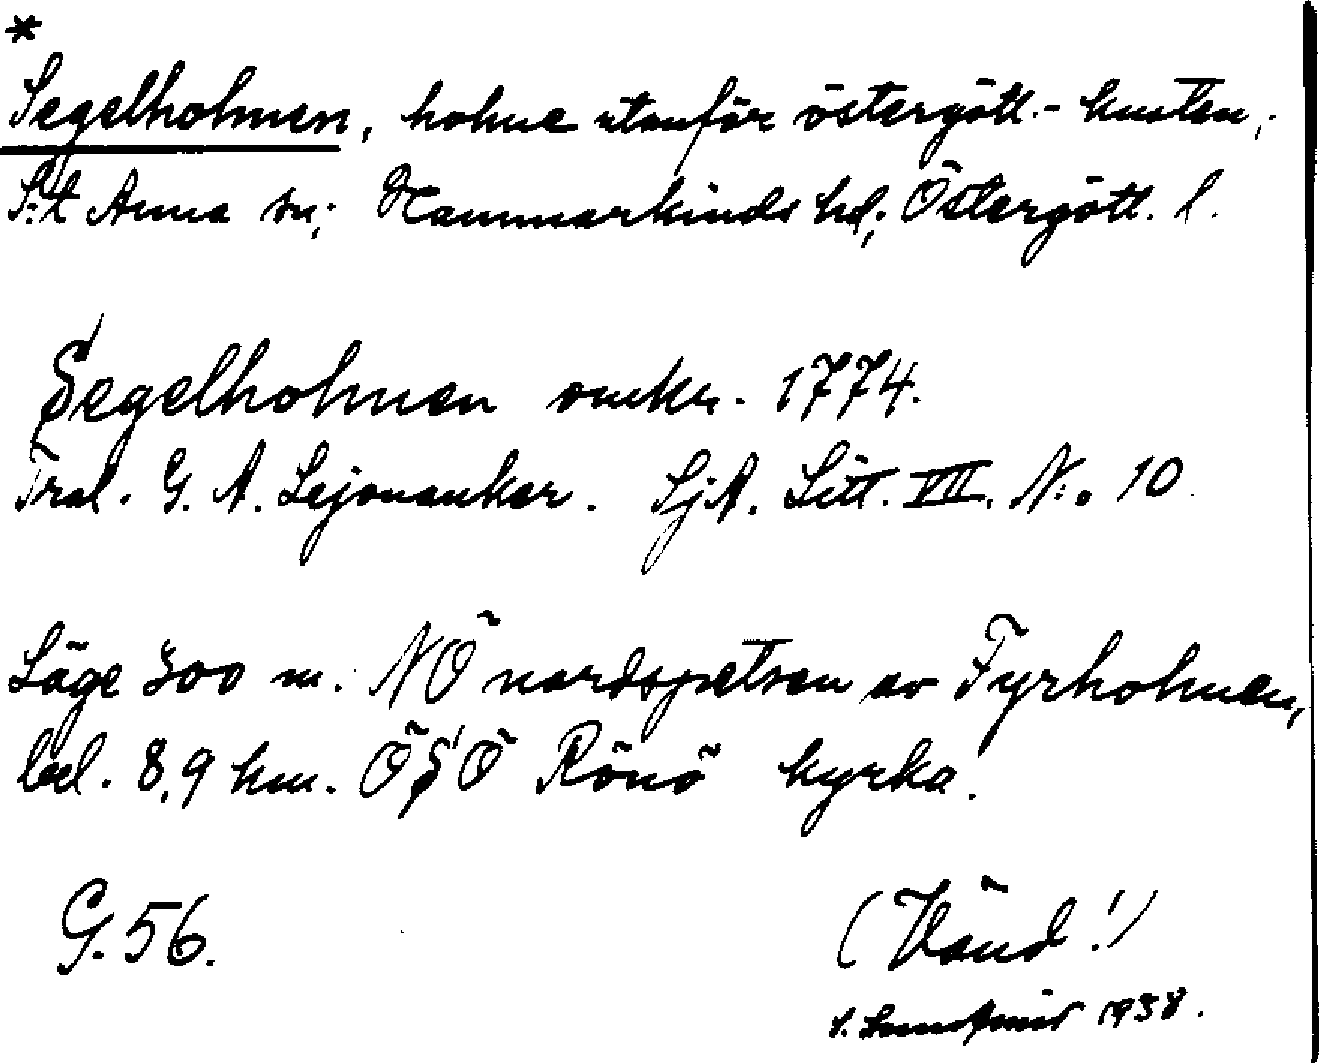 *
Segelholmen, holme utanför östergött.- kusten,
S:t Anna sn; Hammarkinds hd; Östergött. l.
Segelholmen omkr. 1774.
Fral. G. A. Lejonankar. SjA. Litt. VIII. N:o 10
Läge 300 m. NÖ nordspetsen av Fyrholmen,
bel. 8,9 km. ÖSÖ Rönö kyrka.
G. 56.
(Vänd!)
1938.